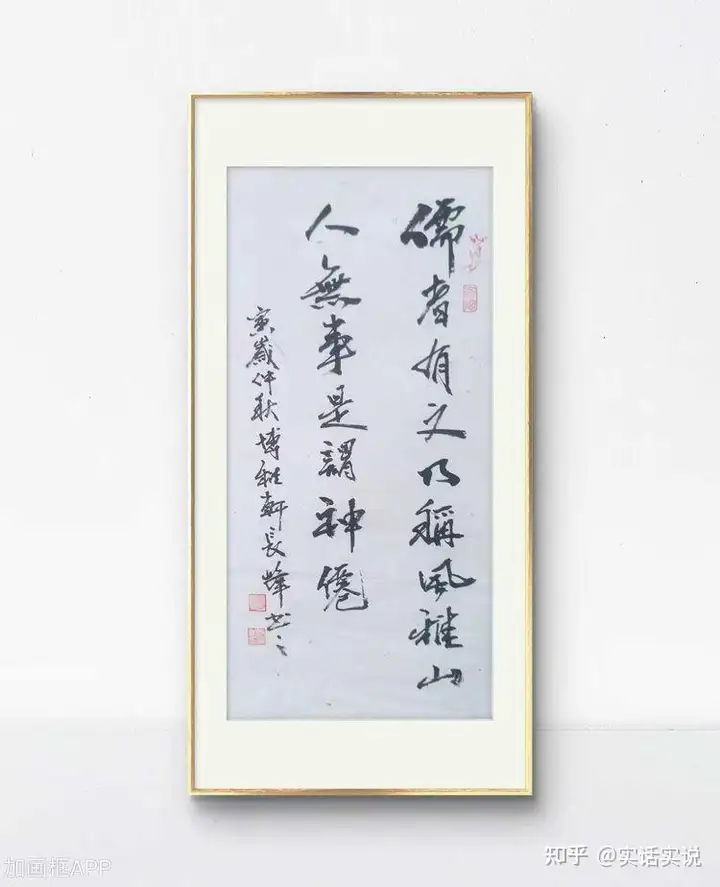 儒者有文乃稱風雅山
人無事是謂神僊
寅歲仲秋博雅軒長峰书之
知乎 @实话实说
加画框APP